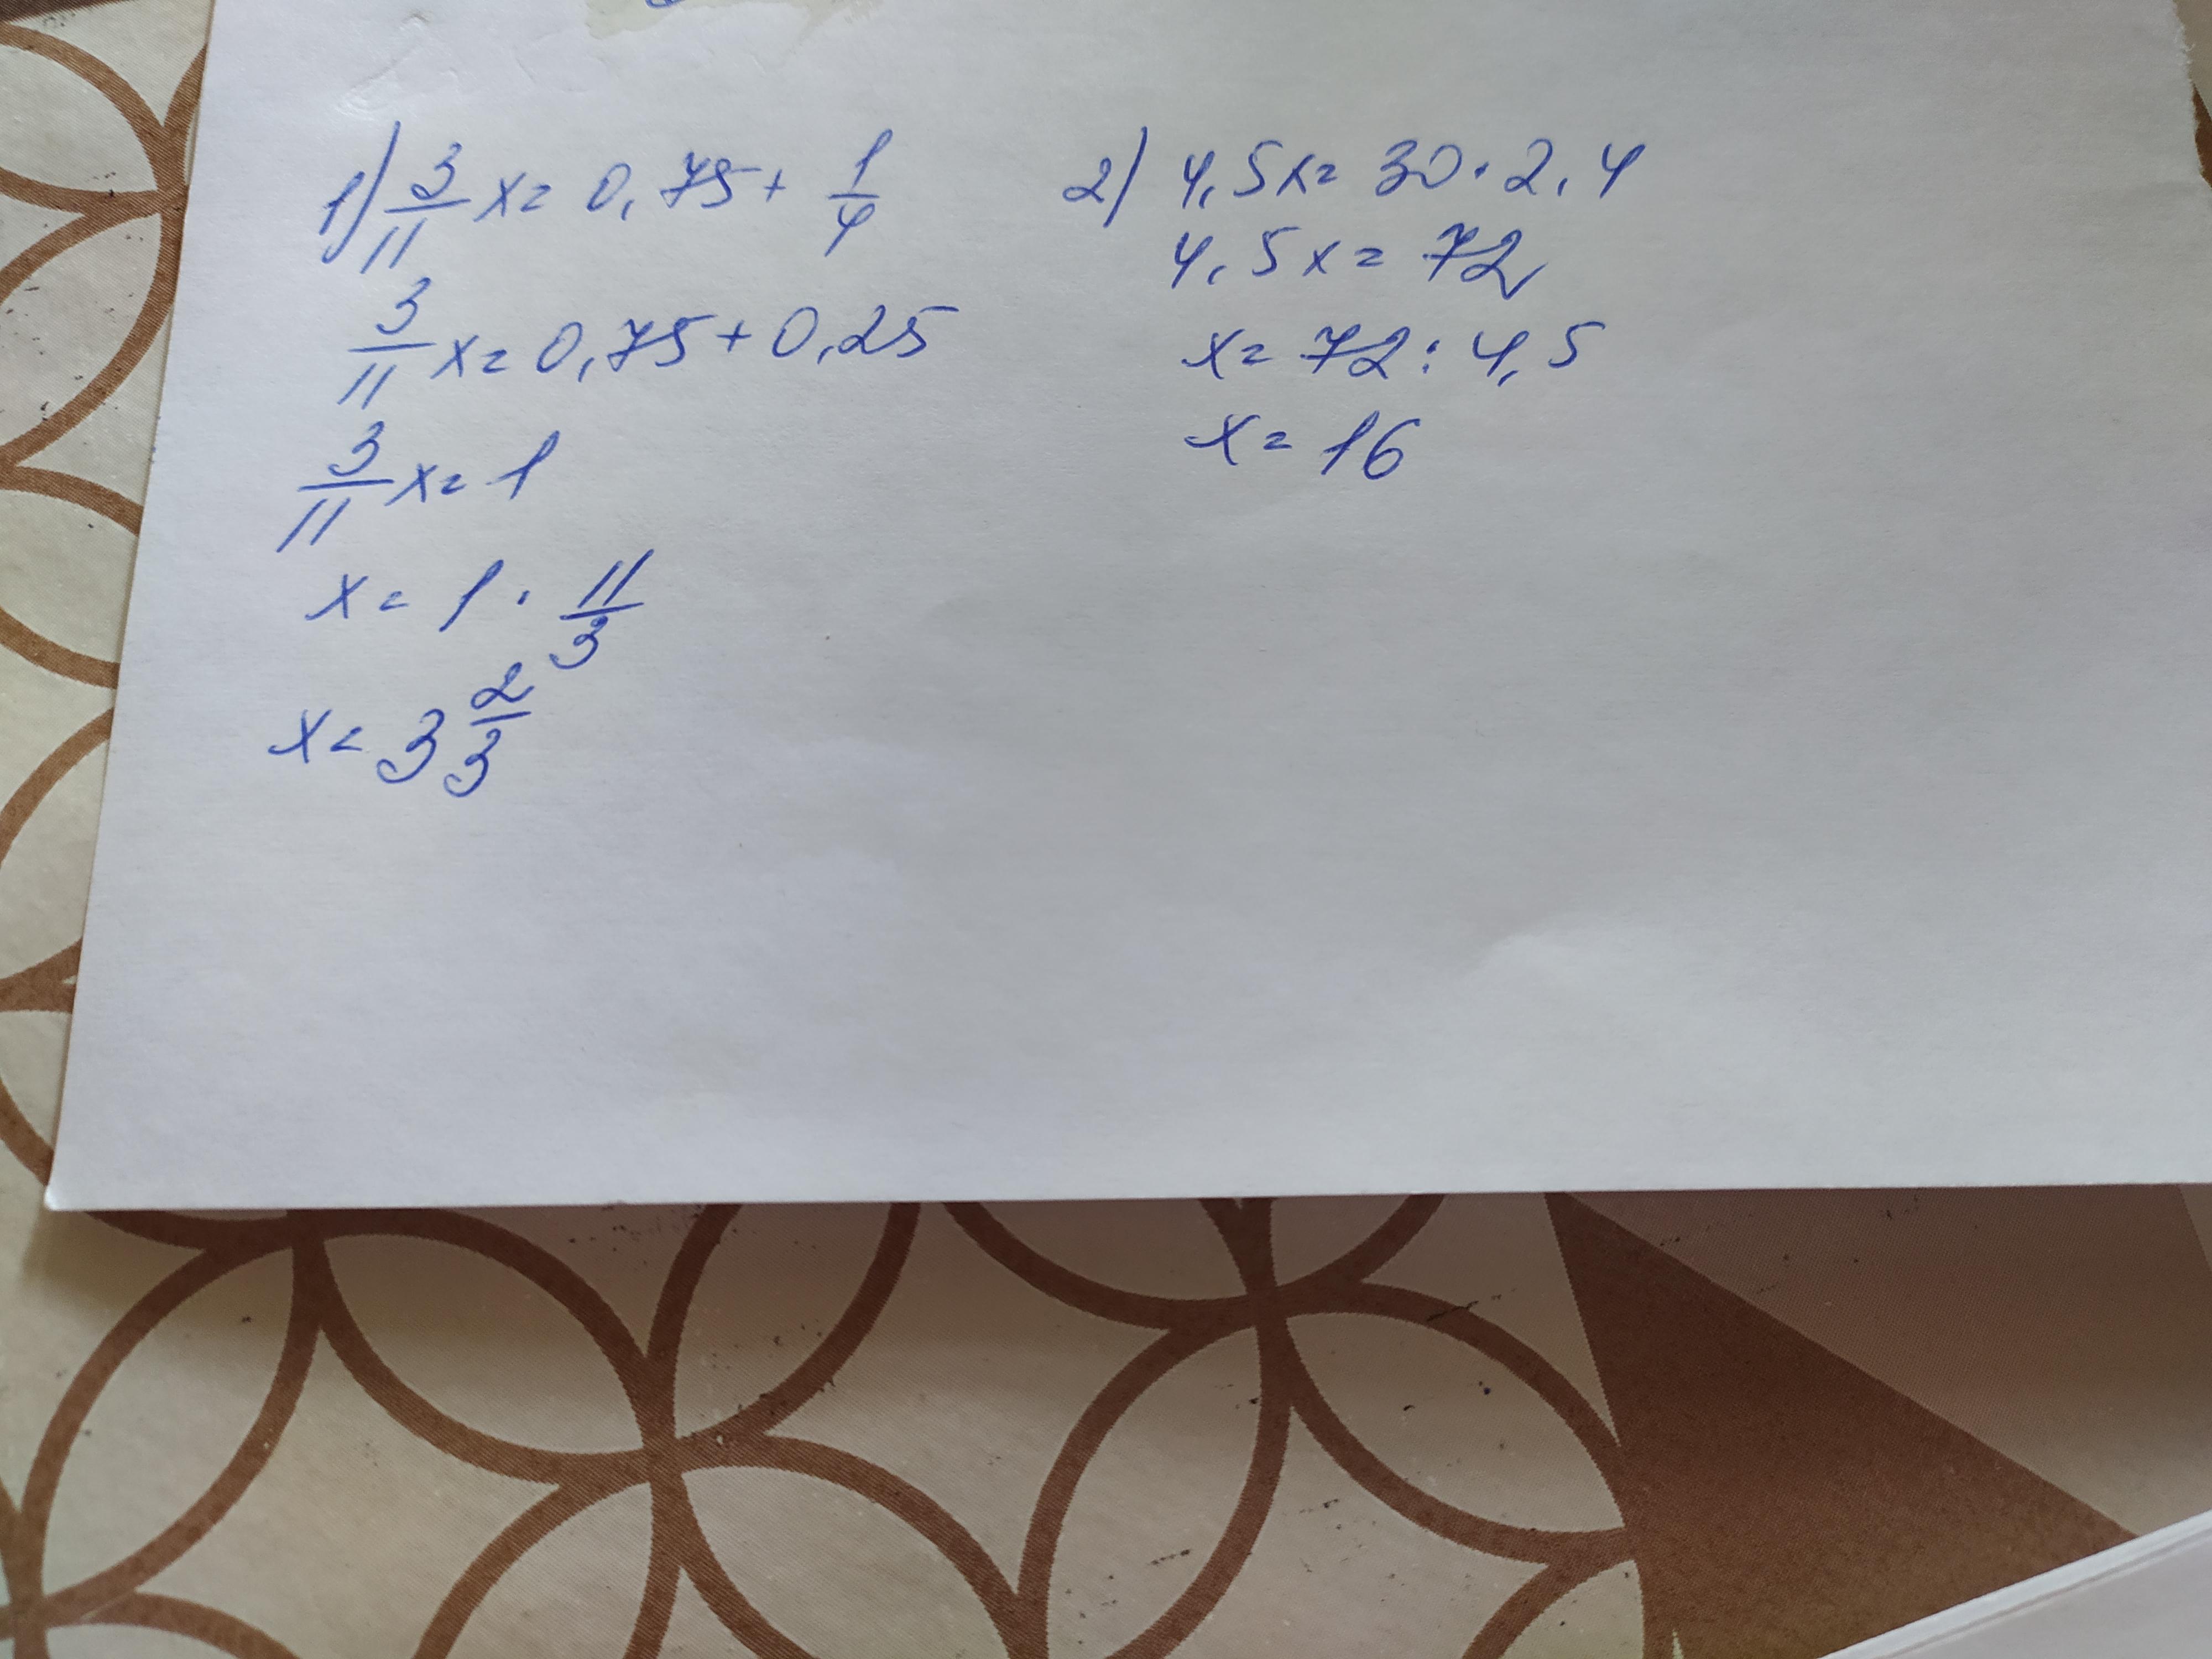 1) 3/11 x = 0,75 + 1/4
3/11 x = 0,75 + 0,25
3/11 x = 1
x = 1 · 11/3
x = 3 2/3
2) 4,5x = 30 · 2,4
4,5x = 72
x = 72 : 4,5
x = 16